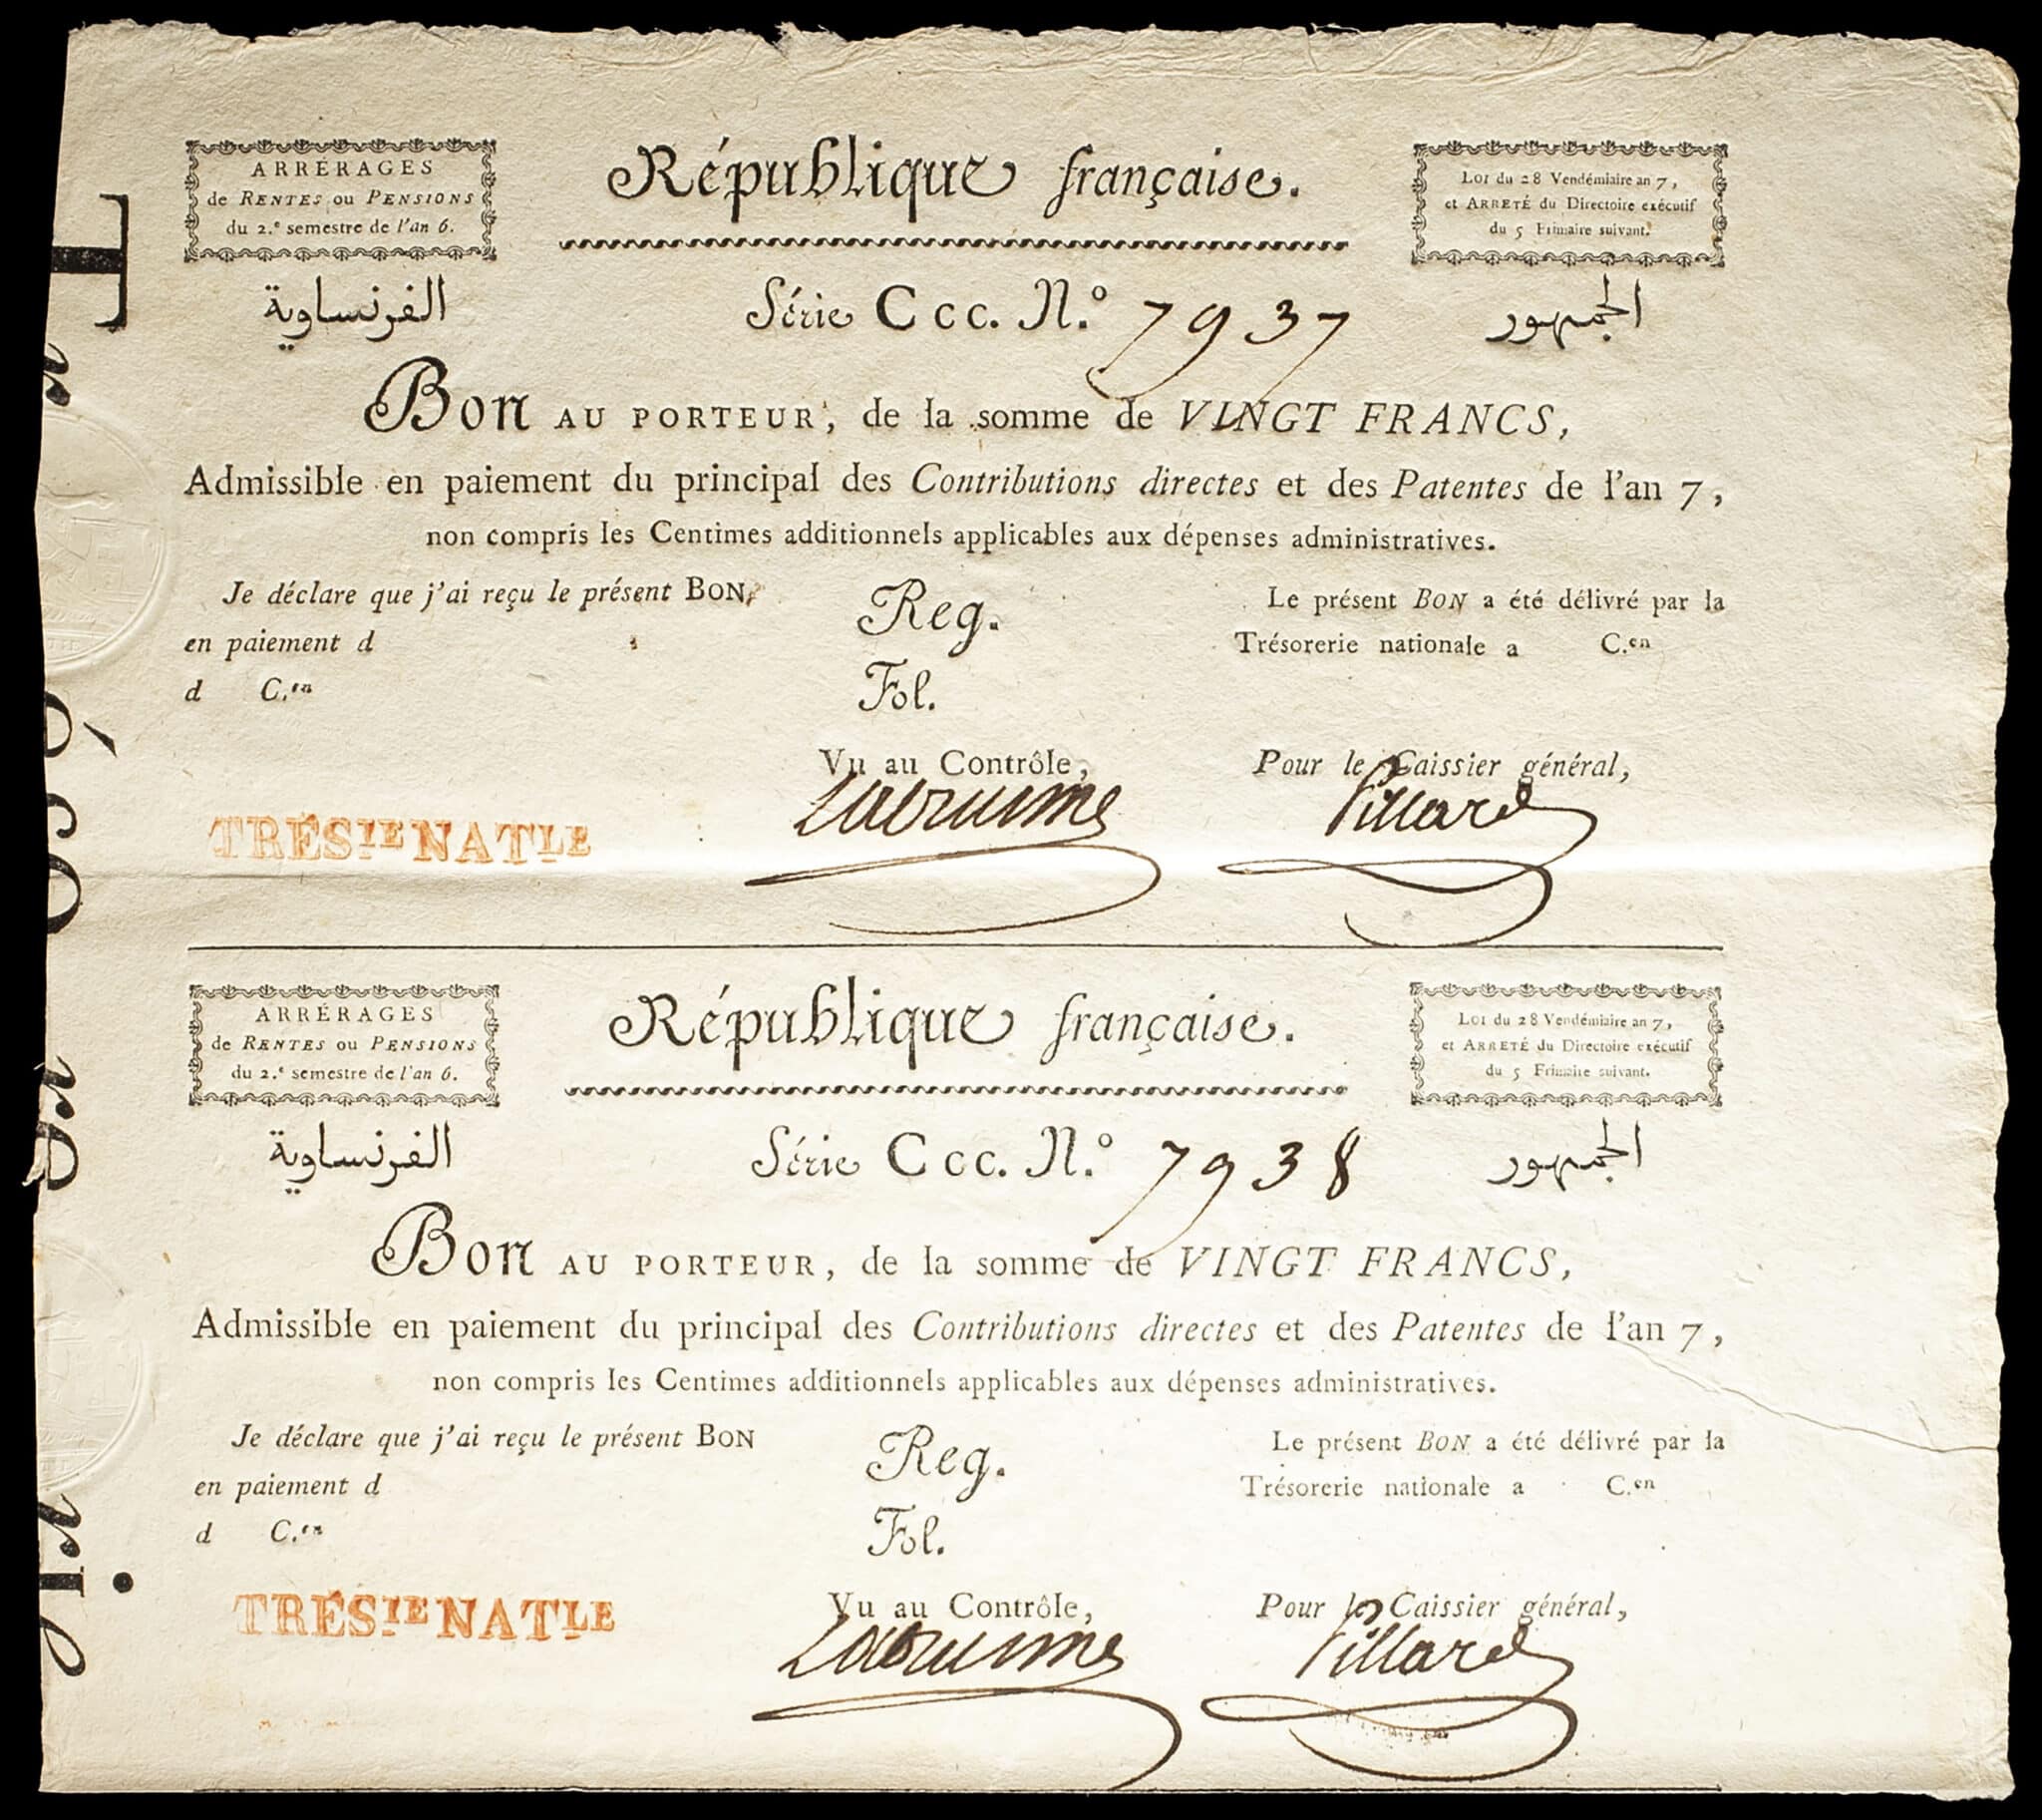 ARRÉRAGES
de RENTES ou PENSIONS
du 2.e semestre de l'an 6.
République française.
LOI du 28 Vendémiaire an 7,
et ARRETÉ du Directoire exécutif
du 5 Frimaire suivant.
الفرنساوية
Série Ccc. N.º 7937
الجمهور
Bon AU PORTEUR, de la somme de VINGT FRANCS,
Admissible en paiement du principal des Contributions directes et des Patentes de l'an 7,
non compris les Centimes additionnels applicables aux dépenses administratives.
Je déclare que j'ai reçu le présent BON,
en paiement d
d C.en
Reg.
Fol.
Le présent BON a été délivré par la
Trésorerie nationale a C.en
Vu au Contrôle,
Pour le Caissier général,
Villard
TRÉSIE NATLE
ARRÉRAGES
de RENTES ou PENSIONS
du 2.e semestre de l'an 6.
République française.
LOI du 28 Vendémiaire an 7,
et ARRETÉ du Directoire exécutif
du 5 Frimaire suivant.
الفرنساوية
Série Ccc. N.º 7938
الجمهور
Bon AU PORTEUR, de la somme de VINGT FRANCS,
Admissible en paiement du principal des Contributions directes et des Patentes de l'an 7,
non compris les Centimes additionnels applicables aux dépenses administratives.
Je déclare que j'ai reçu le présent BON
en paiement d
d C.en
Reg.
Fol.
Le présent BON a été délivré par la
Trésorerie nationale a C.en
Vu au Contrôle,
Pour le Caissier général,
Villard
TRÉSIE NATLE